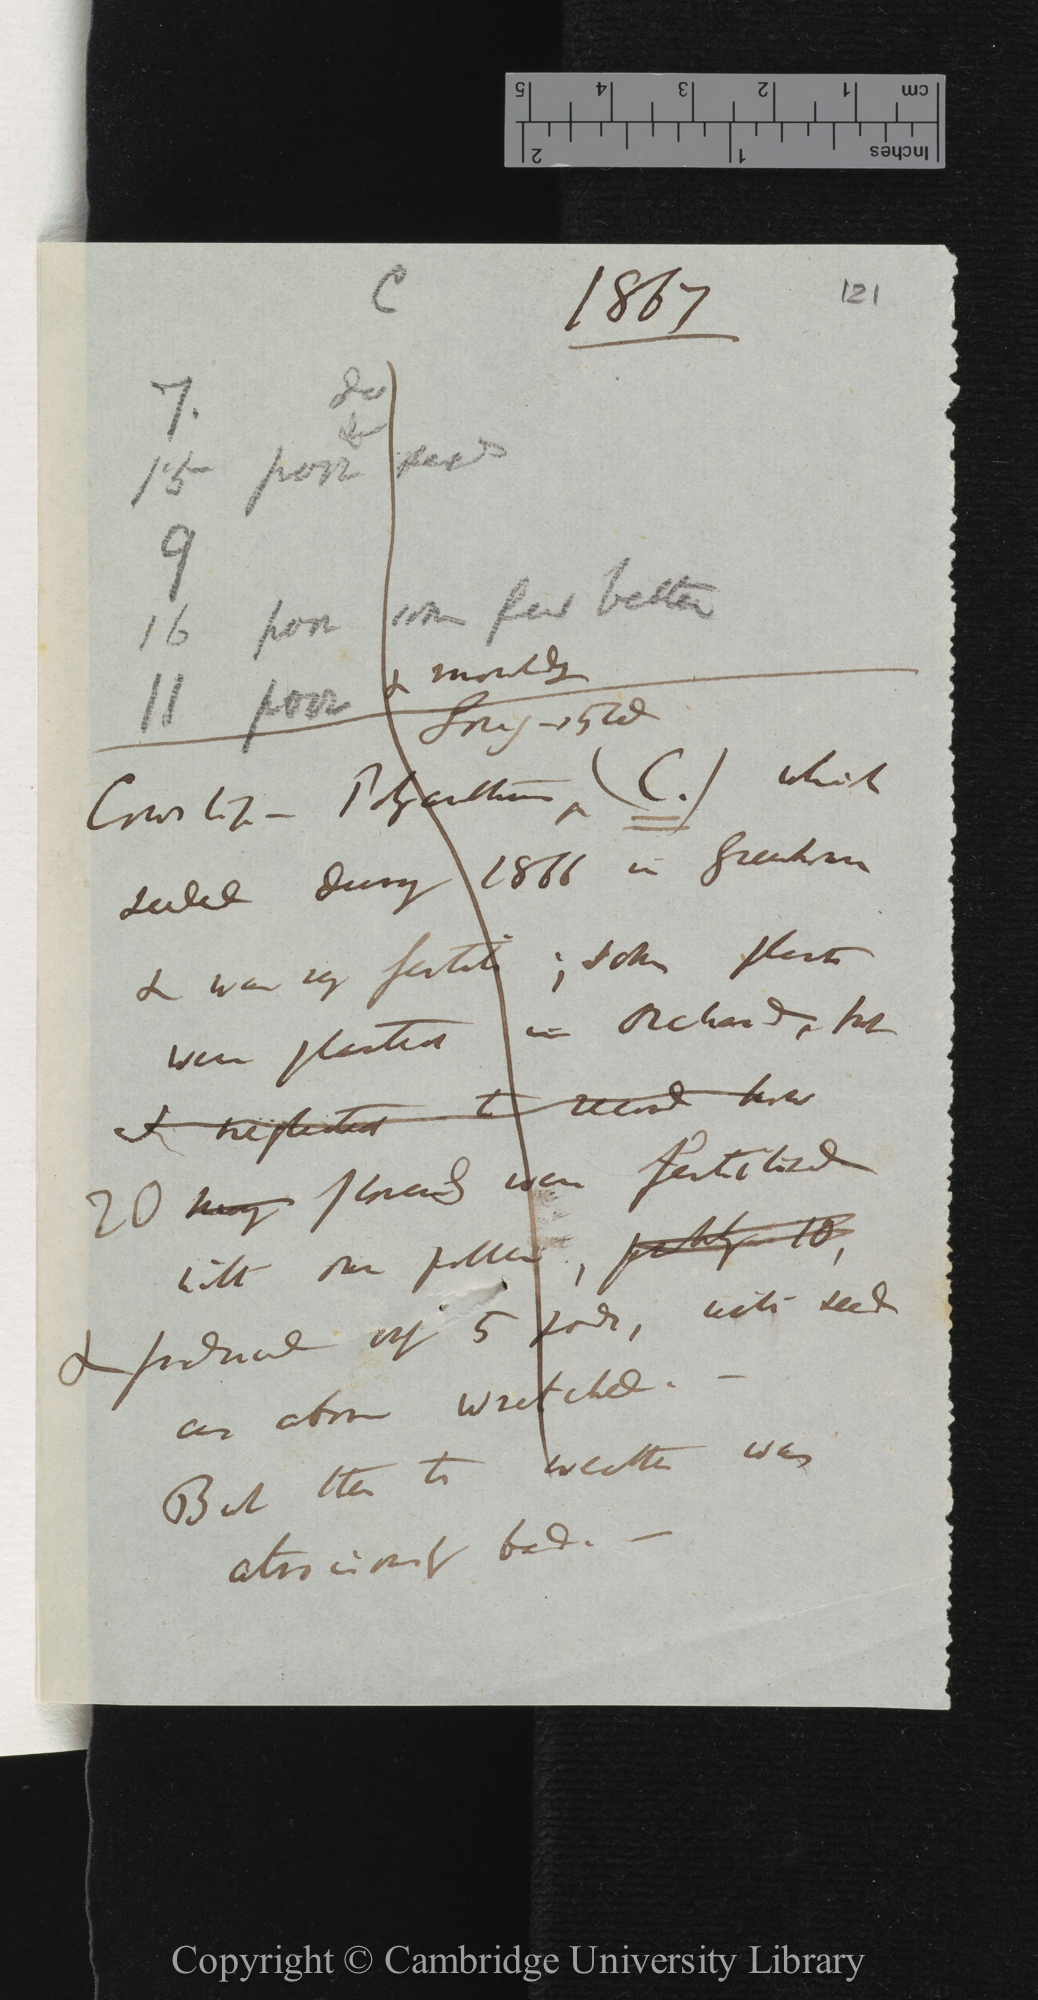 cm 1 2 3 4 5
Inches 1 2
C 1867 121
7. do
do
15 poor seeds
9
16 poor some few better
11 poor
& mouldy
long-styled
Cowslip – Polyanthus ^ (C.) which
seeded during 1866 in greenhouse
& was very fertile; some plants
were planted in Orchard, but
I neglected to record how
20 many flowers were fertilised
with own pollen, probably 10,
& produced only 5 pods, with seed
as above wretched. –
But then the weather was
atrociously bad. –
Copyright © Cambridge University Library